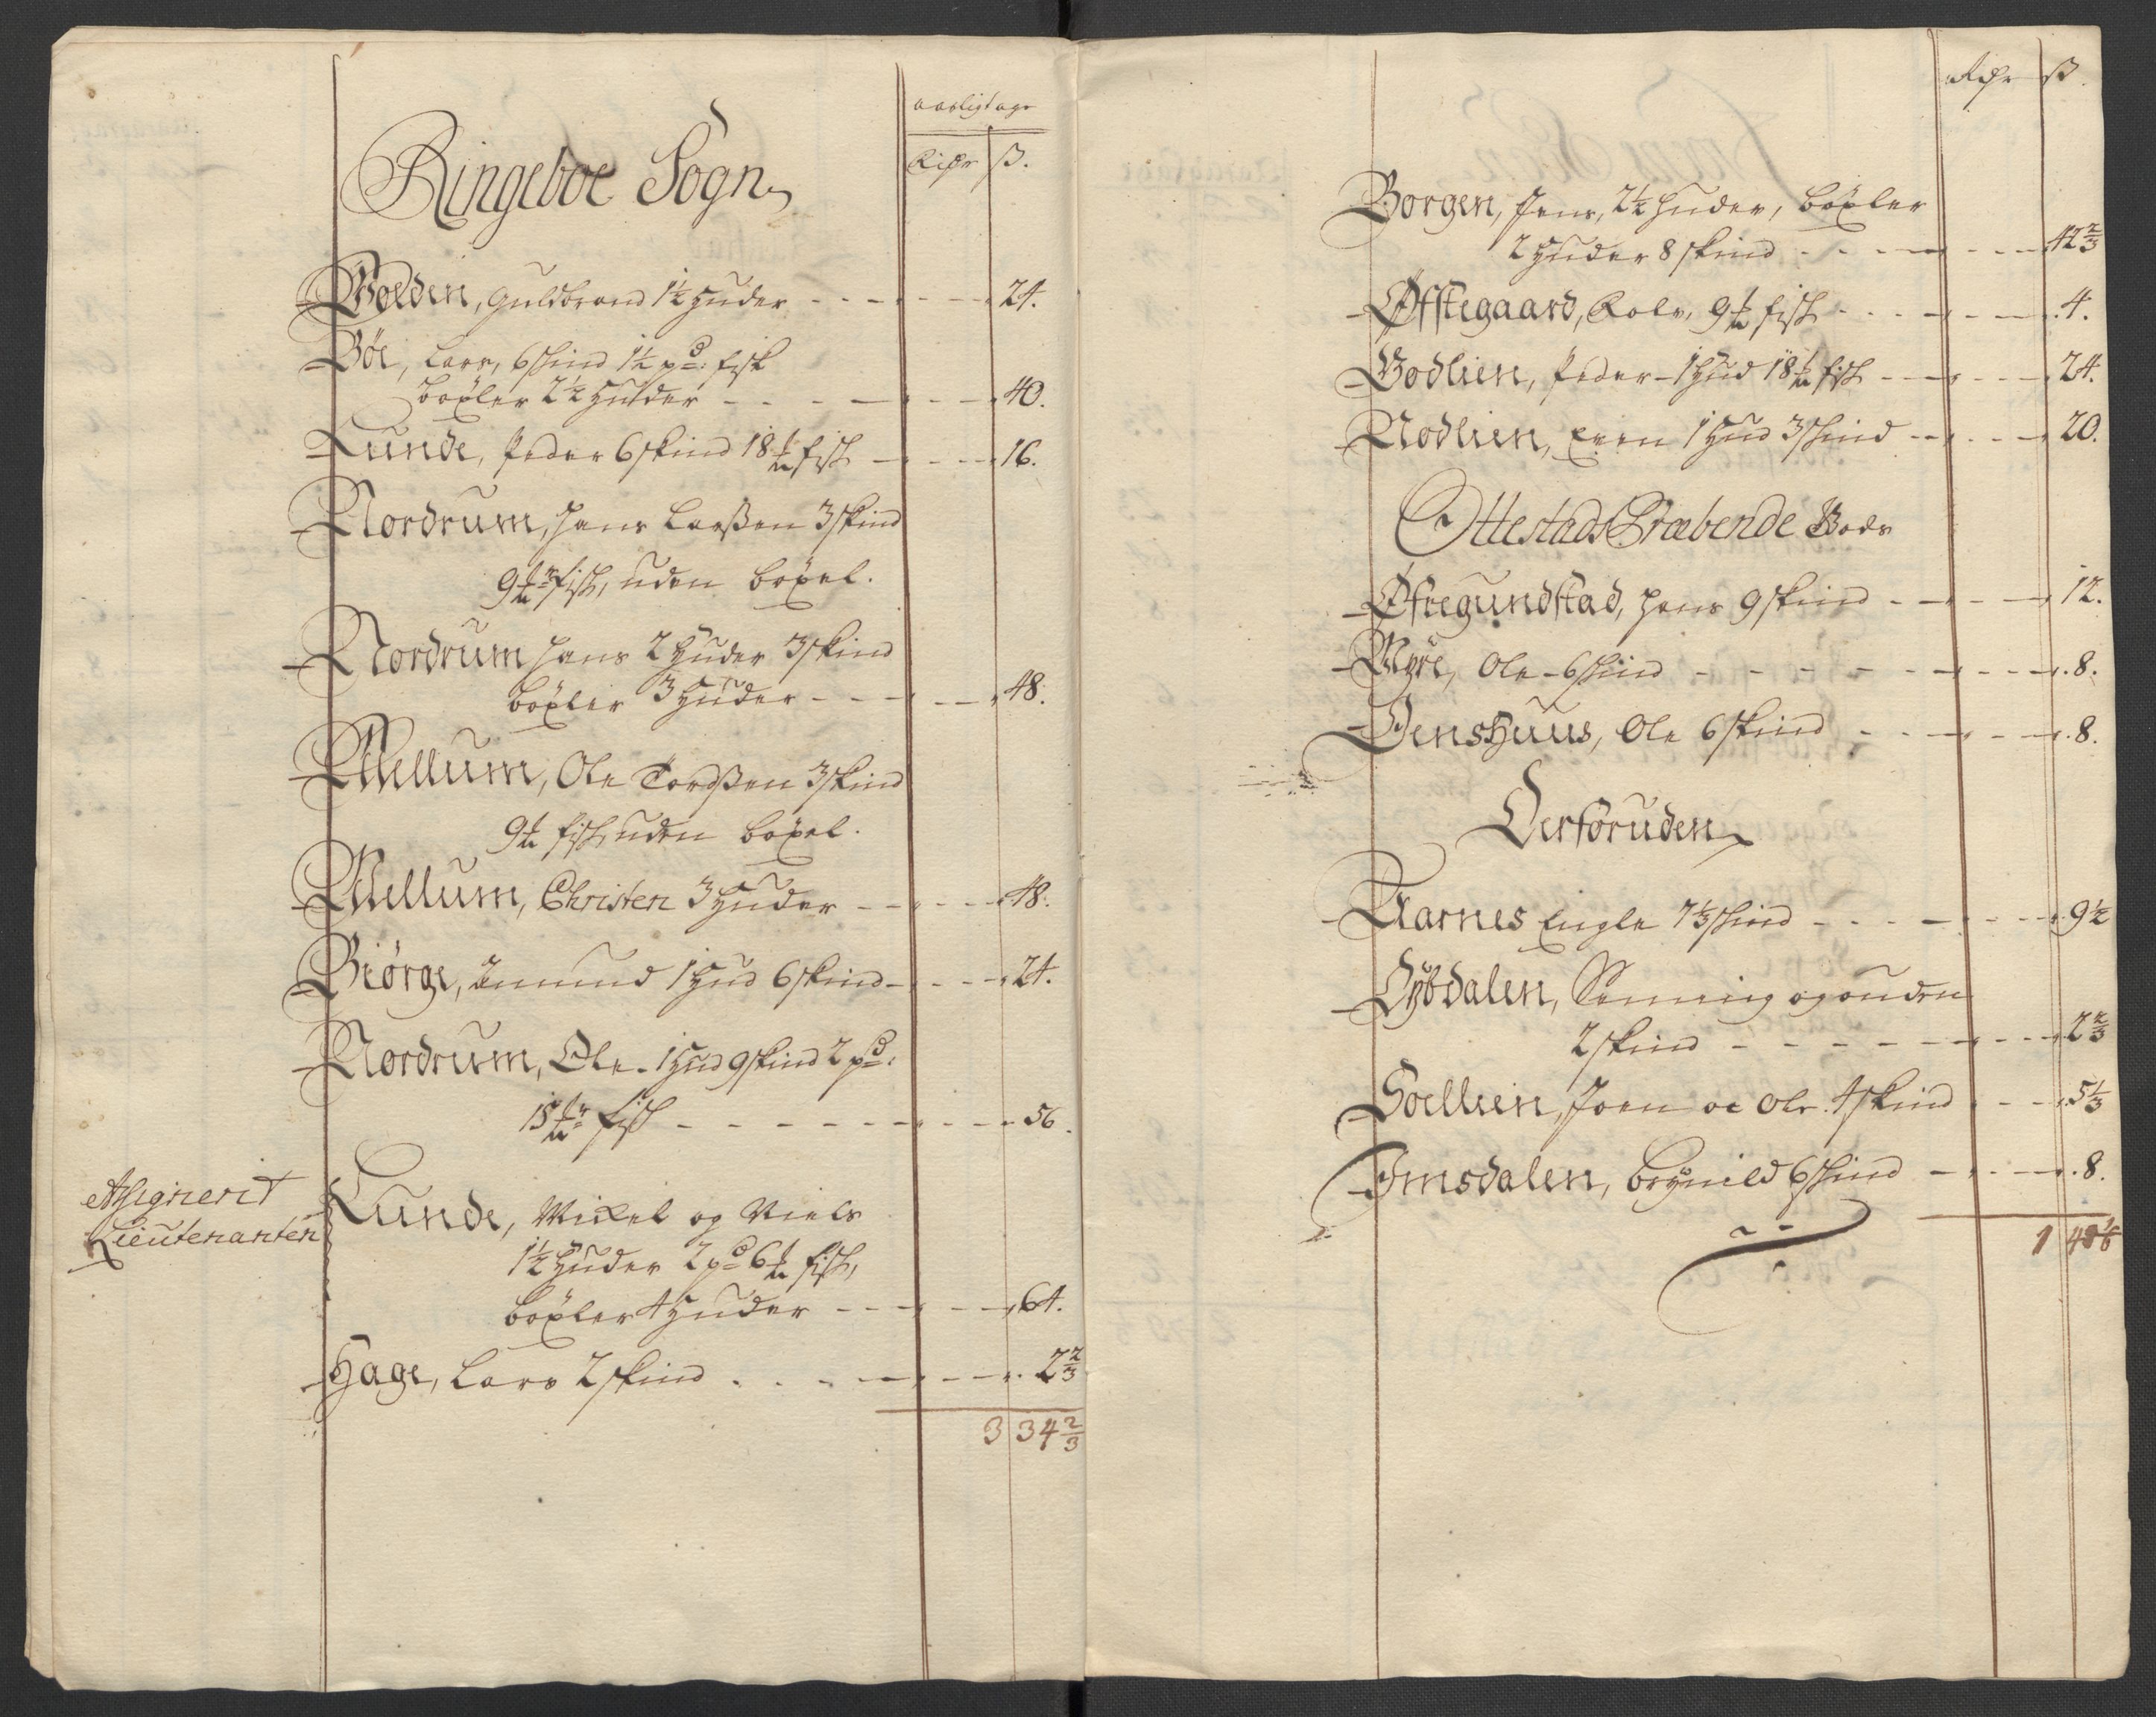 aarligtage
Rixdr ß.
Ringeboe Sogn
Volden, Guldbrand 1½ huder - - - 24.
Böe, Lars, 6 skind 1½ pd: fisk
böxler 2½ huder - - - 40.
Lunde, Peder 6 skind 18 fisk - - - 16.
Nordrum, Hans Larßen 3 skind
9 fisk, uden böxel.
Nordrum Hans 2 huder 3 skind
böxler 3 huder - - - 48.
Mellum, Ole Tordßen 3 skind
9 fisk, uden böxel.
Mellum, Christen 3 huder - - - 48.
Biørge, Amund 1 hud 6 skind - - - 24.
Nordrum, Ole - 1 hud 9 skind 2 pd:
15 fisk - - - 56.
Assignerit
Lieutenanten
Lunde, Mickel og Niels
1½ huder 2 pd 6 fisk,
böxler 4 huder - - - 64.
Hage, Lars 2 skind - - - 2⅔
3 34⅔
Rixdr ß.
Borgen, Jens, 2½ huder, böxler
2 huder 8 skind - - - 42⅔
Øfstegaard, Rolv, 9 fisk - - - 4.
Bodlien, Peder - 1 hud 18 fisk - - - 24.
Nodlien, Even 1 hud 3 skind - - - 20.
Ottestads Præbende Gods
Øfregundstad, Hans 9 skind - - - 12.
Myre, Ole - 6 skind - - - 8.
Jenshuus, Ole 6 skind - - - 8.
Østforuden
Aarnes Engle 7⅓ skind - - - 9½
Dybdalen, Henning og anden
2 skind - - - 2⅔
Soellien, Joen oc Ole 4 skind - - - 5⅓
Imsdalen, Brynild 6 skind - - - 8.
1 48⅙